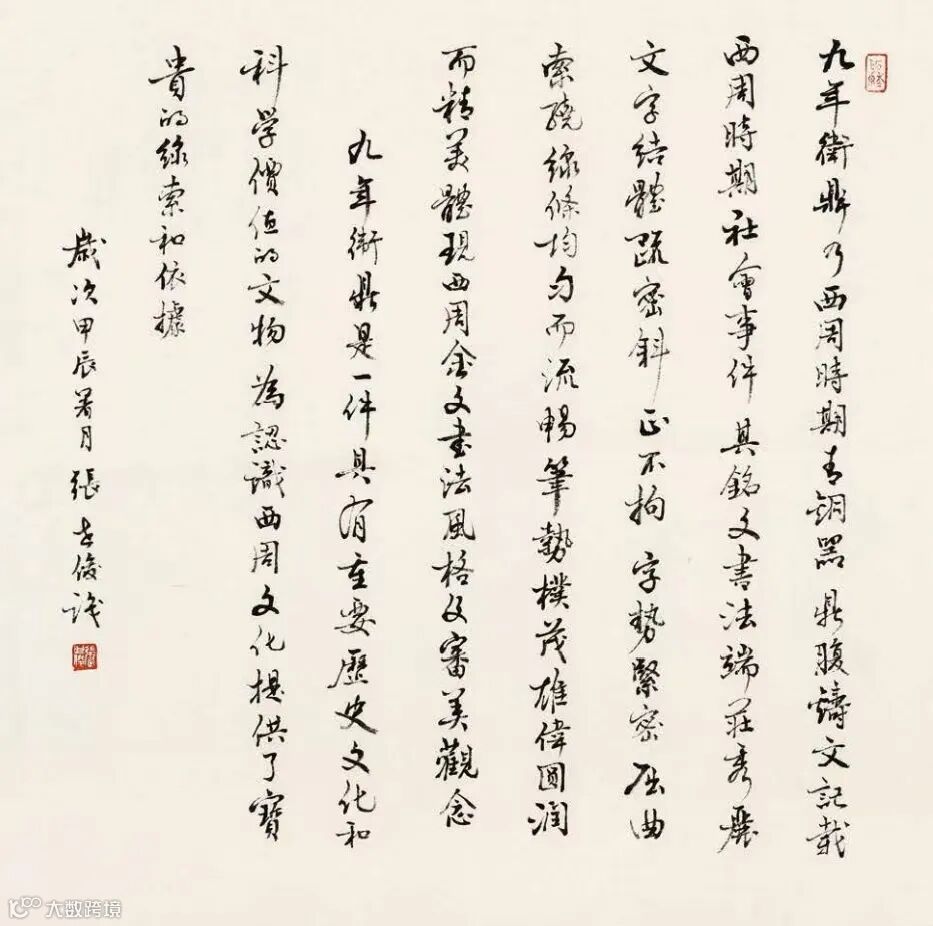 九年衛鼎乃西周時期青銅器鼎腹鑄文記載
西周時期社會事件其銘文書法端莊秀麗
文字結體疏密斜正不拘字勢緊密屈曲
索繞線條均勻而流暢筆勢樸茂雄偉圓潤
而精美體現西周金文書法風格及審美觀念
九年衛鼎是一件具有重要歷史文化和
科學價值的文物為認識西周文化提供了寶
貴的線索和依據
歲次甲辰署月張志俊識
大数跨境